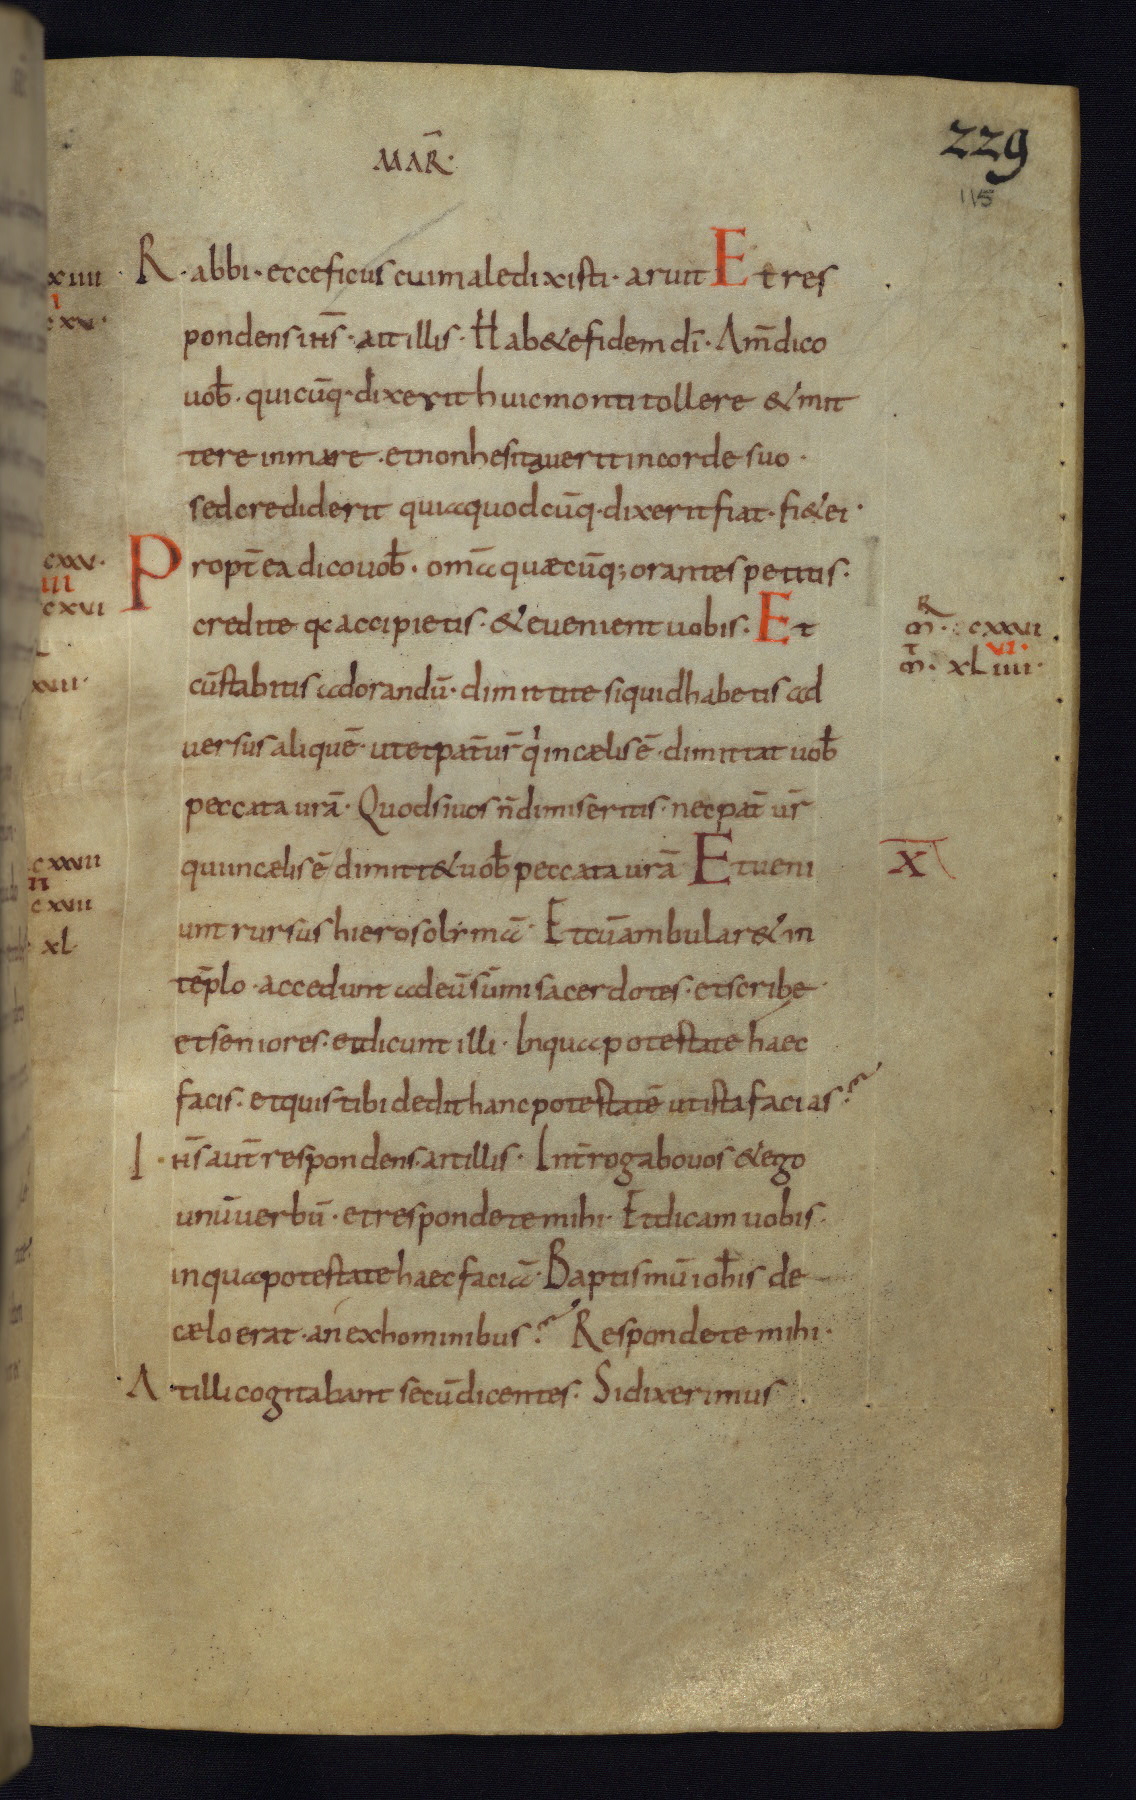 MAR̄·
229
115
R·abbi· ecce ficus cui maledixisti· aruit Et res
pondens ih̄s· ait illis· Habete fidem dī· Am̄ dico
uob̄· quicūq· dixerit huic monti tollere & mit
tere in mare· et non hesitauerit in corde suo·
sed crediderit quia quodcūq· dixerit fiat· fi&ei·
Propt̄ea dico uob̄· om̄a quæcūq; orantes petitis·
credite qa accipietis· & euenient uobis· Et
cū stabitis ad orandū· dimittite si quid habetis ad
uersus aliquē· ut et pat̄ ur̄ qi in cælis ē· dimittat uob̄
peccata urā· Quod si uos n̄ dimiseritis· nec pat̄ ur̄
qui in cælis ē dimitt& uob̄ peccata urā Et ueni
unt rursus hierosolimā· Et cū ambular& in
tēplo· accedunt ad eū sūmi sacerdotes· et scribę·
et seniores· et dicunt illi· In qua potestate haec
facis· et quis tibi dedit hanc potestatē ut ista facias?
I·h̄s aut̄ respondens· ait illis· Int̄rogabo uos & ego
unū uerbū· et respondete mihi· Et dicam uobis·
in qua potestate haec faciā· Baptismū ioh̄is de
cælo erat· an ex hominibus? Respondete mihi·
At illi cogitabant secū dicentes· Si dixerimus
xiiii
cxxv·
iii
cxvi
R
m̄· cxxvi
vi·
m̄· xLiiii·
X
cxxvii
ii
cxviii
xl·